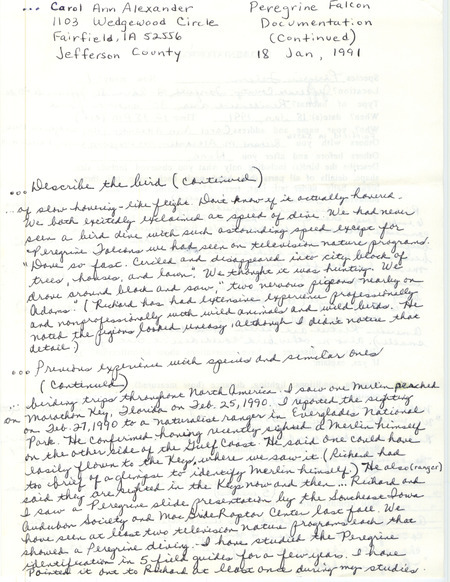 ... Carol Ann Alexander
1103 Wedgewood Circle
Fairfield, IA 52556
Jefferson County
Peregrine Falcon
Documentation
(Continued)
18 Jan, 1991
... Describe the bird (continued)
... of slow-hovering-like flight. Don't know if it actually hovered.
We both excitedly exclaimed at speed of dive. We had never
seen a bird dive with such astounding speed except for
Peregrine Falcons we had seen on television nature programs.
"Dove so fast. Circled and disappeared into city block of
trees, houses, and lawn". We thought it was hunting. We
drove around block and saw, "two nervous pigeons nearly on
Adams". (Richard has had extensive experience professionally
and nonprofessionally with wild animals and wild birds. He
noted the pigeons looked uneasy, although I didn't notice that
detail.)
... Previous experience with species and similar ones
(Continued)
... birding trips throughout North America. I saw one Merlin perched
on Marathon Key, Florida on Feb. 25, 1990. I reported the sighting
on Feb. 27, 1990 to a naturalist ranger in Everglades National
Park. He confirmed having recently sighted a Merlin himself
on the other side of the Gulf Coast. He said one could have
easily flown to the Keys, where we saw it (Richard had
too brief of a glimpse to identify Merlin himself.) He also (ranger)
said they are sighted in the Keys now and then... Richard and
I saw a Peregrine slide presentation by the Southeast Iowa
Audubon Society and MacBride Raptor Center last fall. We
have seen at least two television nature programs each that
showed a Peregrine diving. I have studied the Peregrine
identification in 5 field guides for a few years. I have
pointed it out to Richard at least once during my studies.